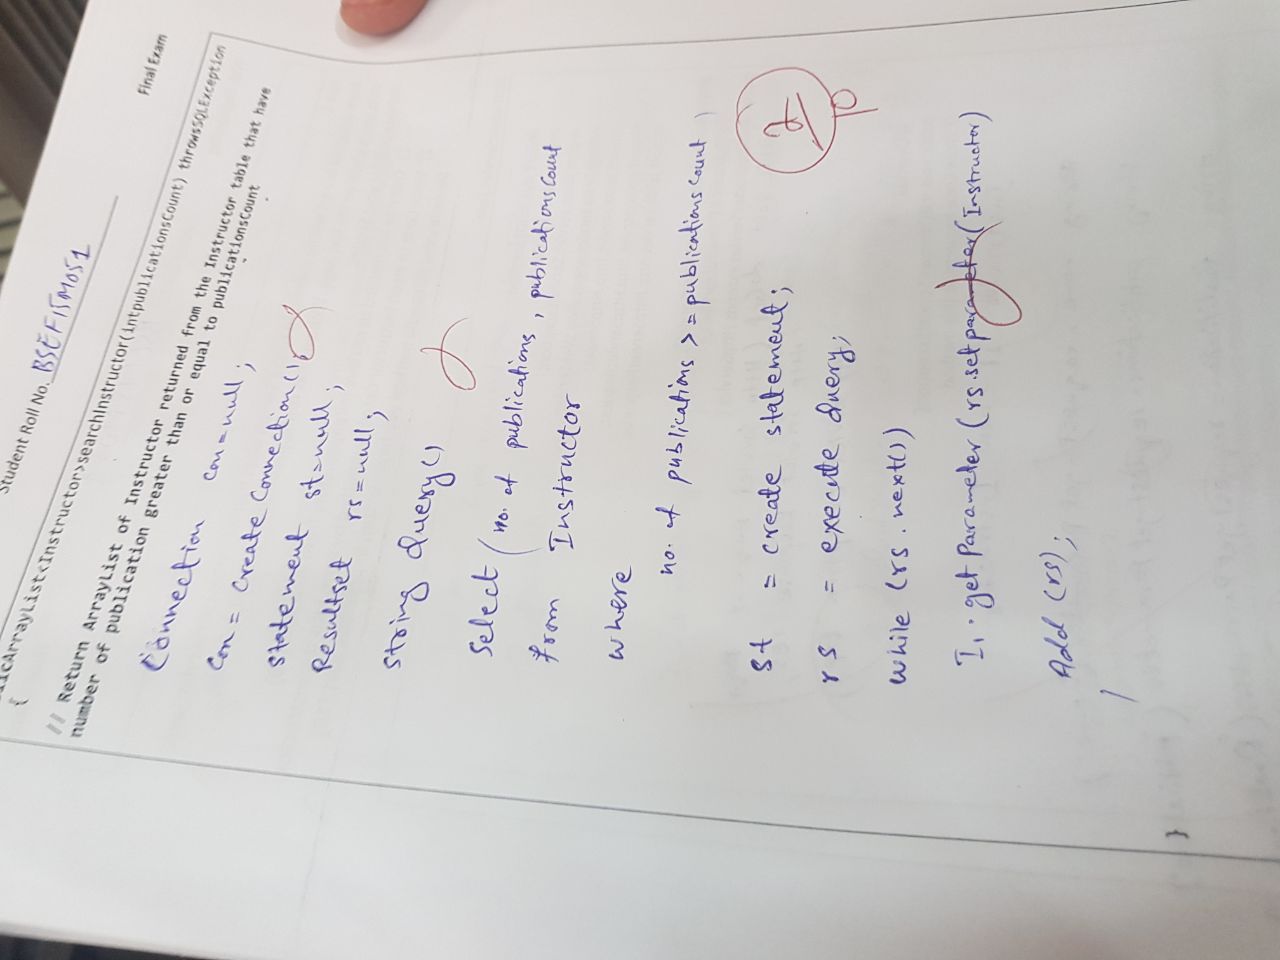 Student Roll No. BSEF15M051
Final Exam
icArrayList<Instructor>searchInstructor(intpublicationsCount) throwsSQLException
{
// Return ArrayList of Instructor returned from the Instructor table that have
number of publication greater than or equal to publicationsCount
Connection con=null;
Con = Create Connection();
statement st=null;
Resultset rs=null;
string Query()
Select ( no. of publications, publicationsCount
from Instructor
where
no. of publications >= publicationsCount )
st = create statement;
rs = execute Query;
while (rs.next())
I1.get Parameter (rs.setparameter(Instructor)
Add (rs);
}
2
10